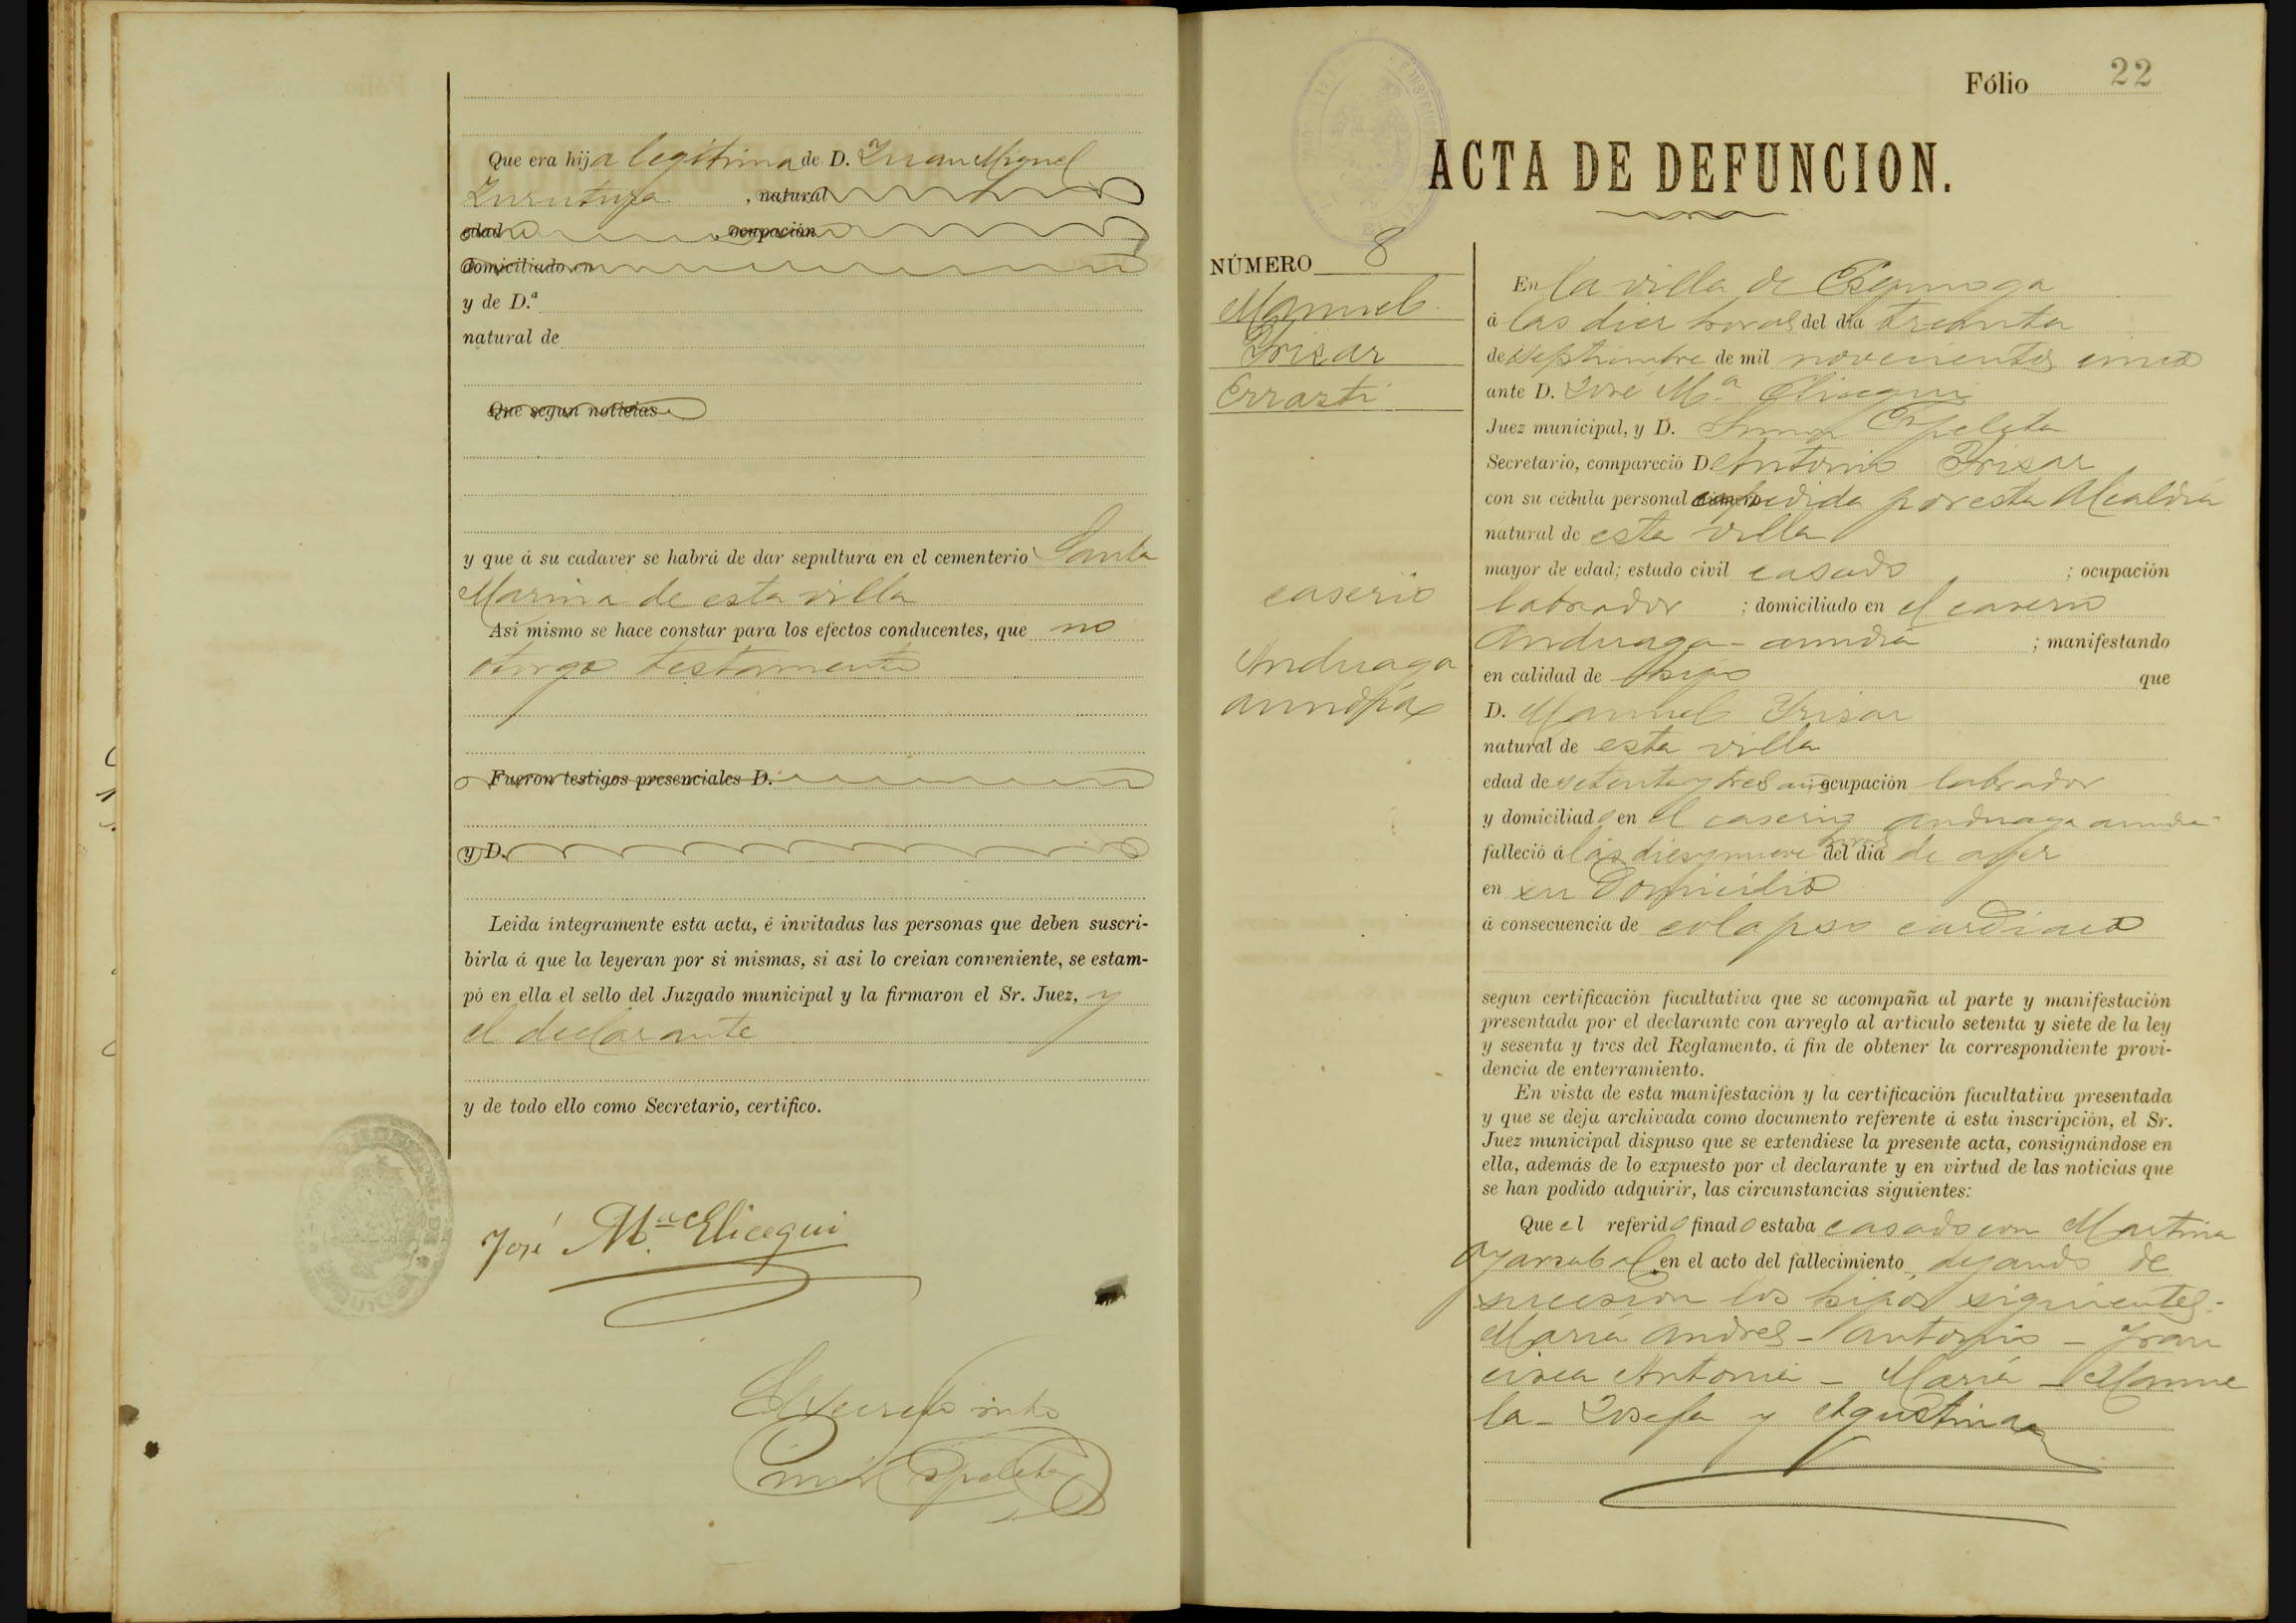 Que era hija legítima de D. Juan Miguel
Zurutuza , natural
edad , ocupación
domiciliado en
y de D.ª
natural de
Que segun noticias
y que á su cadaver se habrá de dar sepultura en el cementerio Santa
Marina de esta villa
Asi mismo se hace constar para los efectos conducentes, que no
otorgo testamento
Fueron testigos presenciales D.
y D.
Leida integramente esta acta, é invitadas las personas que deben suscri-
birla á que la leyeran por si mismas, si asi lo creian conveniente, se estam-
pó en ella el sello del Juzgado municipal y la firmaron el Sr. Juez, y
el declarante
y de todo ello como Secretario, certifico.
José Mª Elicegui
El Secretario
Espeleta
Fólio 22
ACTA DE DEFUNCION.
NÚMERO 8
Manuel
Yrizar
Errasti
caserio
Anduaga
aundía
En la villa de
á las diez horas del dia treinta
de septiembre de mil novecientos cinco
ante D. José Mª Elicegui
Juez municipal, y D. Espeleta
Secretario, compareció D. Antonio Yrizar
con su cédula personal expedida por esta Alcaldía
natural de esta villa
mayor de edad; estado civil casado ; ocupación
labrador ; domiciliado en el caserio
Anduaga-aundia ; manifestando
en calidad de hijo que
D. Manuel Yrizar
natural de esta villa
edad de setenta y tres años ocupación labrador
y domiciliado en el caserio anduaga aundia
falleció á las diez y nueve horas del dia de ayer
en su Domicilio
á consecuencia de colapso cardiaco
segun certificación facultativa que se acompaña al parte y manifestación
presentada por el declarante con arreglo al artículo setenta y siete de la ley
y sesenta y tres del Reglamento, á fin de obtener la correspondiente provi-
dencia de enterramiento.
En vista de esta manifestación y la certificación facultativa presentada
y que se deja archivada como documento referente á esta inscripción, el Sr.
Juez municipal dispuso que se extendiese la presente acta, consignándose en
ella, además de lo expuesto por el declarante y en virtud de las noticias que
se han podido adquirir, las circunstancias siguientes:
Que el referido finado estaba casado con Martina
Oyarzabal en el acto del fallecimiento, dejando de
sucesion los hijos siguientes:
María Andres - Antonio - Fran
cisca Antonia - María - Manue
la - Josefa y Agustina